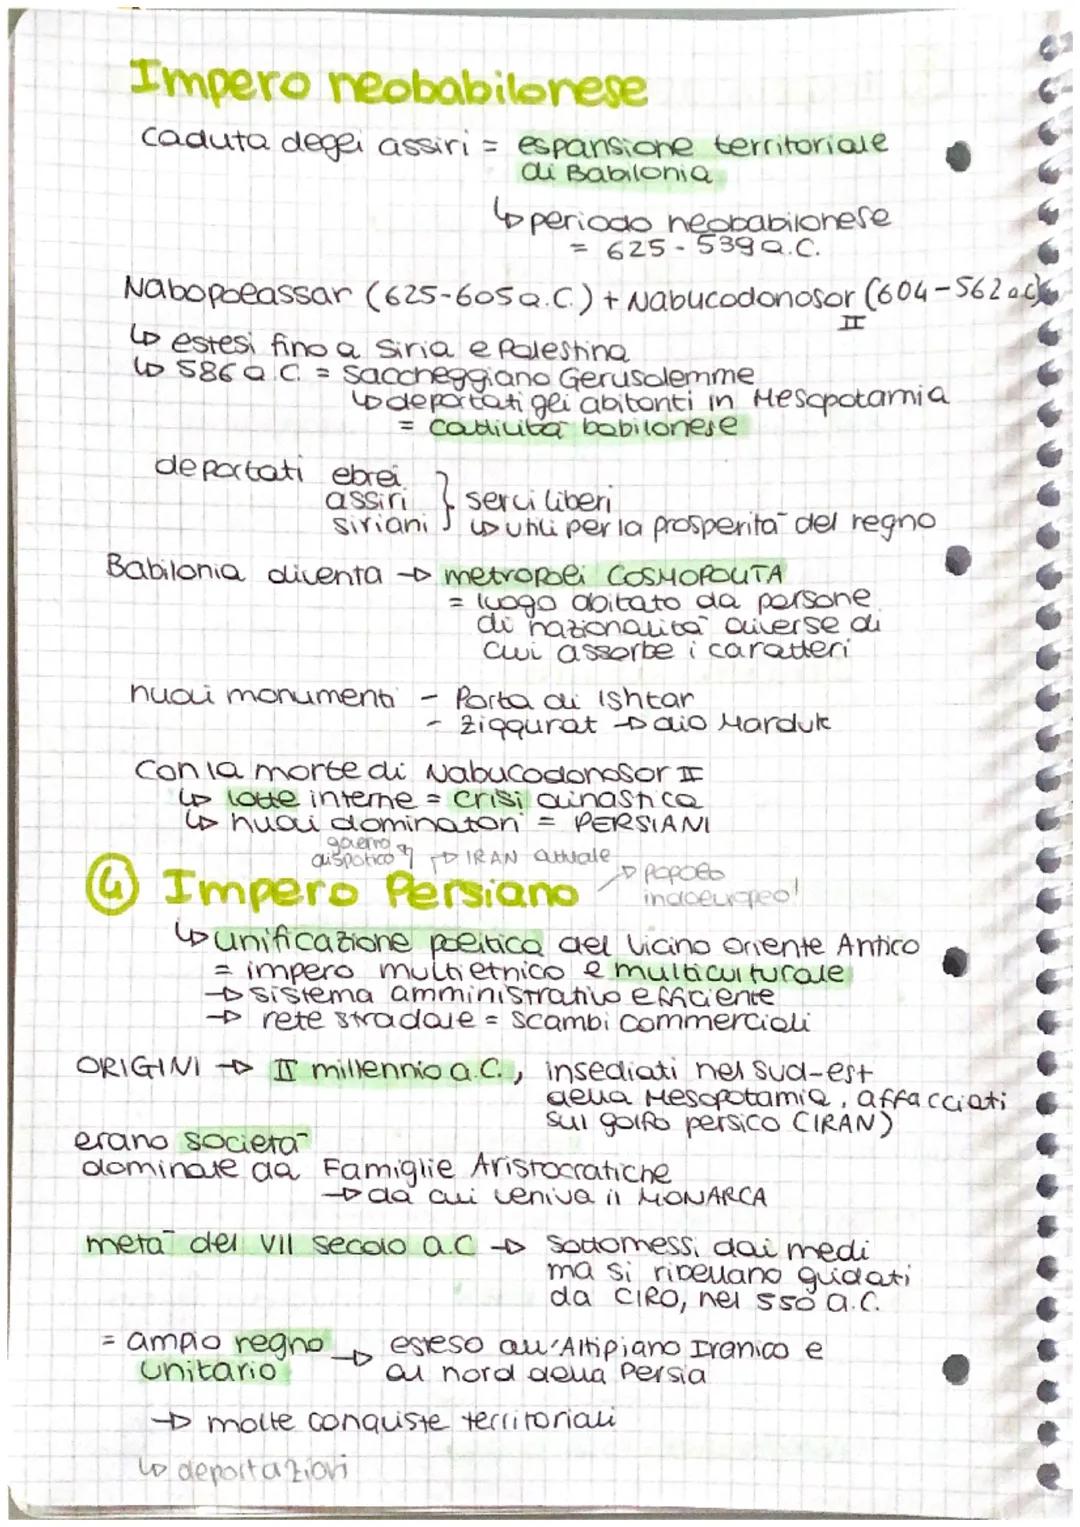 Impero neobabilonese
caduta degli assiri = espansione territoriale
di Babilonia
↳ periodo neobabilonese
= 625 - 539 a.C.
Nabopolassar (625-605 a.C.) + Nabucodonosor (604-562 a.C)
II
↳ estesi fino a Siria e Palestina
↳ 586 a.C. = saccheggiano Gerusalemme
↳ deportati gli abitanti in Mesopotamia
= cattività babilonese
deportati ebrei
assiri } servi liberi
siriani ↳ utili per la prosperità del regno
Babilonia diventa → metropoli COSMOPOLITA
= luogo abitato da persone
di nazionalità diverse di
cui assorbe i caratteri
nuovi monumenti - Porta di Ishtar
- Ziqqurat → dio Marduk
Con la morte di Nabucodonosor II
↳ lotte interne = crisi dinastica
↳ nuovi dominatori = PERSIANI
governo
dispotico → IRAN attuale → popolo
indoeuropeo!
④ Impero Persiano
↳ unificazione politica del Vicino Oriente Antico
= impero multietnico e multiculturale
→ sistema amministrativo efficiente
→ rete stradale = scambi commerciali
ORIGINI → II millennio a.C., insediati nel sud-est
della Mesopotamia, affacciati
sul golfo persico (IRAN)
erano società
dominate da Famiglie Aristocratiche
→ da cui veniva il MONARCA
metà del VII secolo a.C → Sottomessi dai medi
ma si ribellano guidati
da CIRO, nel 550 a.C.
= ampio regno → esteso all'Altipiano Iranico e
unitario al nord della Persia
→ molte conquiste territoriali
↳ deportazioni